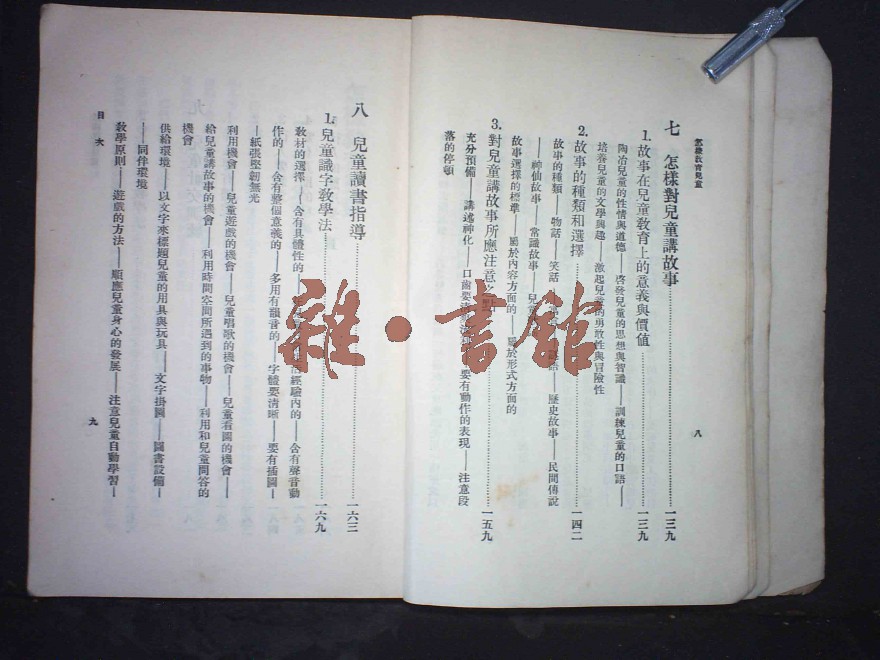 怎樣教育兒童
八
七 怎樣對兒童講故事……一三九
1. 故事在兒童教育上的意義與價値……一三九
陶冶兒童的性情與道德——啓發兒童的思想與智識——訓練兒童的口語——
培養兒童的文學興趣——激起兒童的勇敢性與冒險性
2. 故事的種類和選擇……一四二
故事的種類——物話——笑話——歷史故事——民間傳說
——神仙故事——常識故事——兒
故事選擇的標準——屬於內容方面的——屬於形式方面的
3. 對兒童講故事所應注意之點……一五九
充分預備——講述神化——口齒要——要有動作的表現——注意段
落的停頓
八 兒童讀書指導……一六三
1. 兒童識字敎學法……一六九
敎材的選擇——含有具體性的——經驗內的——含有聲音動
作的——含有整個意義的——多用有韻音的——字體要清晰——要有插圖—
—紙張堅韌無光
利用機會——兒童遊戲的機會——兒童唱歌的機會——兒童看圖的機會——
給兒童講故事的機會——利用時間空間所遇到的事物——利用和兒童問答的
機會
供給環境——以文字來標題兒童的用具與玩具——文字掛圖——圖書設備—
——同伴環境
敎學原則——遊戲的方法——順應兒童身心的發展——注意兒童自動學習—
目次
九
雜·書館